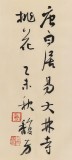 唐白居易大林寺
桃花 乙未秋 静方